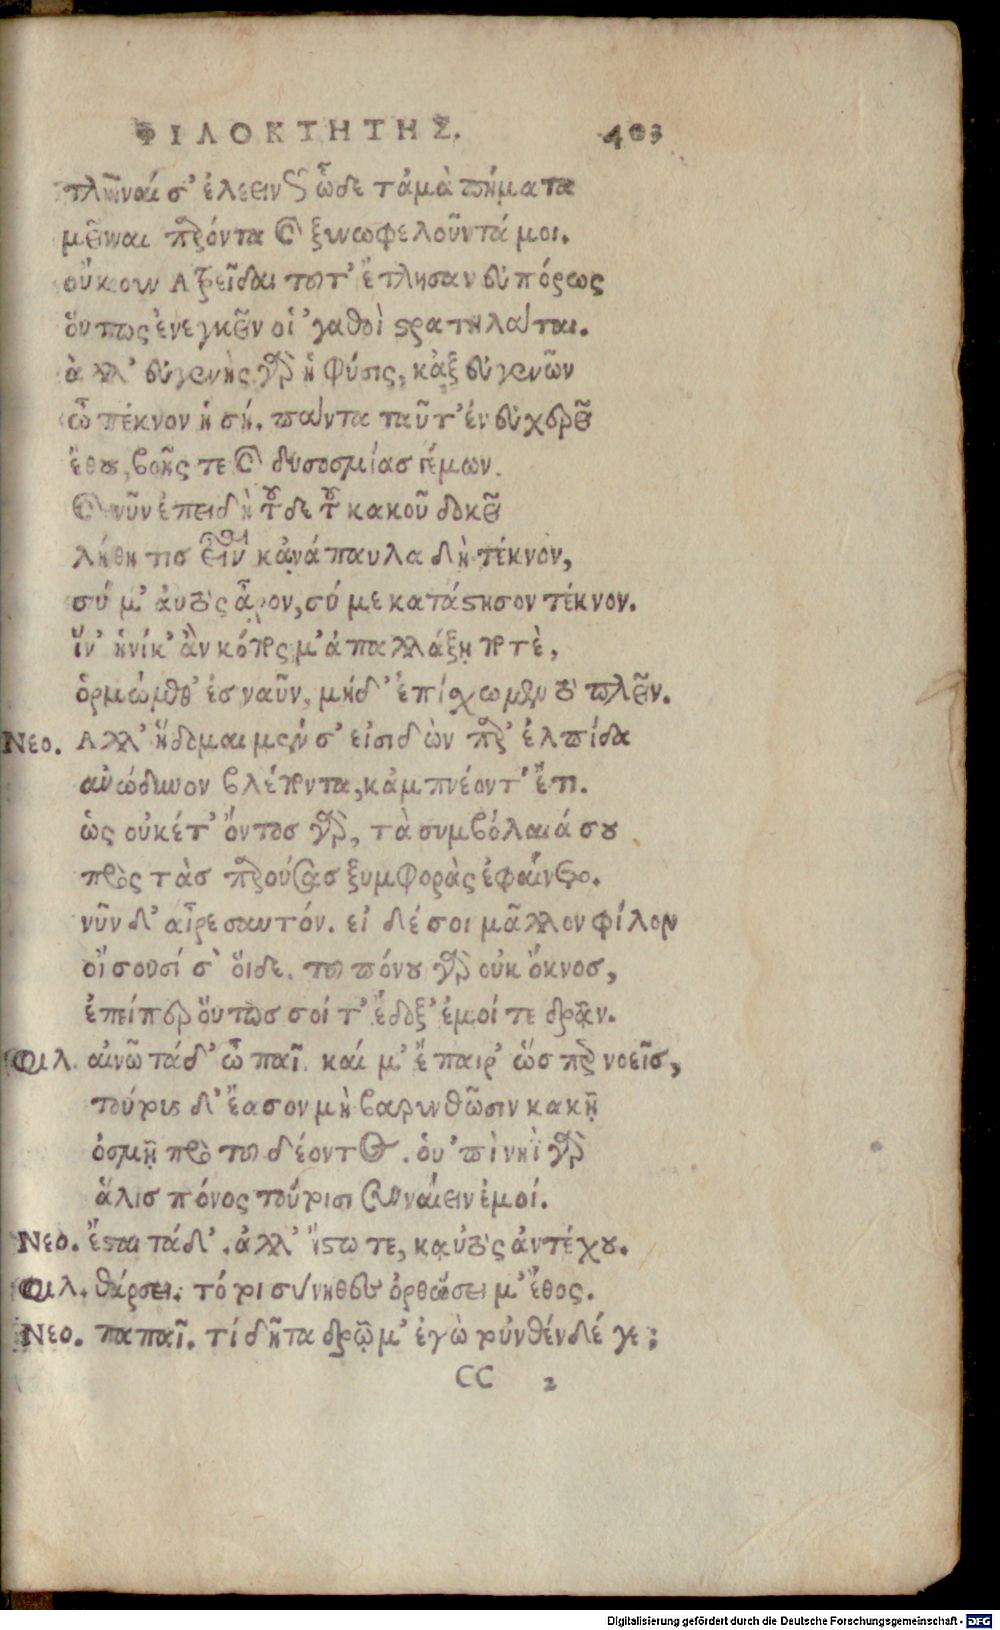 ΦΙΛΟΚΤΗΤΗΣ. 403
τλῆναί σ' ἐλεεινῶς ὧδε τἀμὰ πήματα
μεῖναι παρόντα καὶ ξυνωφελοῦντά μοι.
οὔκουν Ἀτρεῖδαι τοῦτ' ἔτλησαν εὐπόρως
οὕτως ἐνεγκεῖν οἱ 'γαθοὶ στρατηλάται.
ἀλλ' εὐγενὴς γὰρ ἡ φύσις, κἀξ εὐγενῶν
ὦ τέκνον ἡ σή. πάντα ταῦτ' ἐν εὐχερεῖ
ἔθου, βοῆς τε καὶ δυσοσμίασ γέμων.
καὶ νῦν ἐπειδὴ τοῦδε τοῦ κακοῦ δοκεῖ
λήθη τισ εἶναι κἀνάπαυλα δὴ τέκνον,
σύ μ' ἀυτὸς ἆρον, σύ με κατάστησον τέκνον.
ἵν' ἡνίκ' ἂν κόπος μ' ἀπαλλάξῃ ποτὲ,
ὁρμώμεθ' ἐσ ναῦν, μήδ' ἐπίσχωμεν τὸ πλεῖν.
Νεο. Ἀλλ' ἥδομαι μέν σ' εἰσιδὼν παρ' ἐλπίδα
ἀνώδυνον βλέποντα, κἀμπνέοντ' ἔτι.
ὡς οὐκέτ' ὄντοσ γὰρ, τὰ συμβόλαιά σου
πρὸς τὰσ παρούσασ ξυμφορὰς ἐφαίνετο.
νῦν δ' αἶρε σαυτόν. εἰ δέ σοι μᾶλλον φίλον
οἴσουσί σ' ὅιδε. τοῦ πόνου γὰρ οὐκ ὄκνοσ,
ἐπείπερ ὅυτωσ σοί τ' ἔδοξ' ἐμοί τε δρᾶν.
Φιλ. αἰνῶ τάδ' ὦ παῖ. καί μ' ἔπαιρ' ὥσπερ νοεῖσ,
τούτους δ' ἔασον μὴ βαρυνθῶσιν κακῇ
ὀσμῇ πρὸ τοῦ δέοντος. ὁυ' πὶ νηῒ γὰρ
ἅλισ πόνος τούτοισι συνναίειν ἐμοί.
Νεο. ἔσται τάδ'. ἀλλ' ἵστω τε, καὐτὸς ἀντέχου.
Φιλ. θάρσει. τό τοι σύνηθες ὀρθώσει μ' ἔθος.
Νεο. παπαῖ. τί δῆτα δρῷμ' ἐγὼ τοὐνθένδέ γε;
CC 2
Digitalisierung gefördert durch die Deutsche Forschungsgemeinschaft - DFG